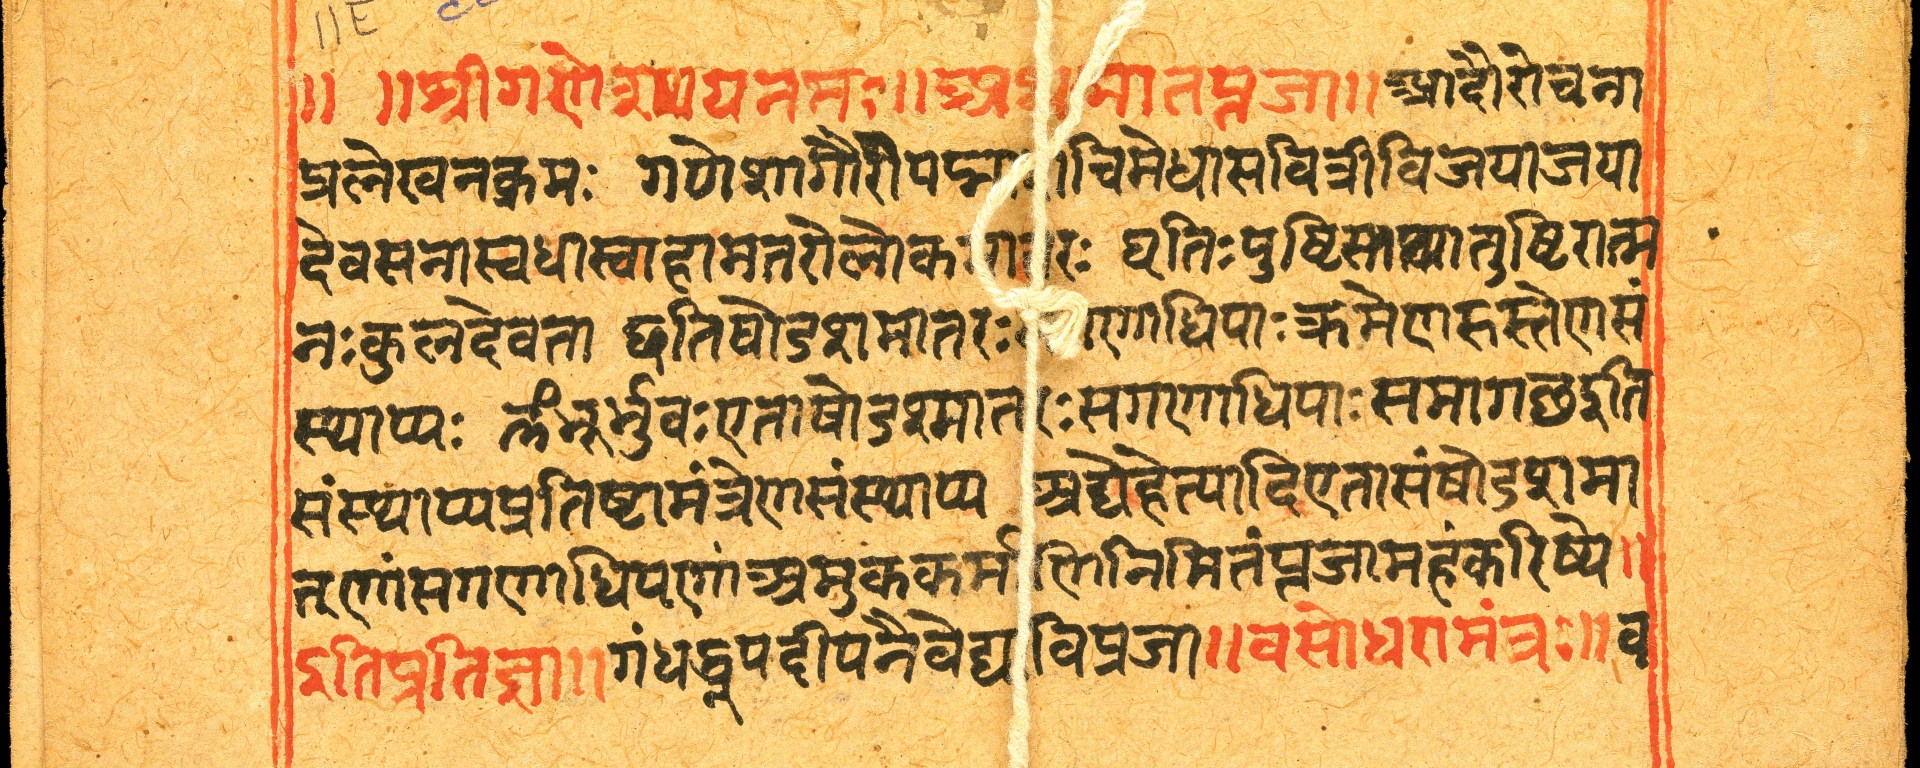 ।। ।।श्रीगणेशाय नमः।।अथ मातपूजा।।आदौरोचना
प्रलेखनक्रमः गणेशागौरीपद्मा चिमेधासवित्रीविजयाजया
देवसनास्वधास्वाहामतरोलोकमातरः धतिःपुष्टिस्तथातुष्टिरात्म
नःकुलदेवता छतिषोडशमातरः गणाधिपाःक्रमेणहस्तेणसं
स्थाप्यः ॐभूर्भुवःएताषोडश्मातरःसगणाधिपाःसमागछइति
संस्थाप्यप्रतिष्टामंत्रेणसंस्थाप्य अद्येहेत्यादिएतासंषोडशमा
तृणांसगणाधिपणांअमुककर्मणिनिमितंपूजामहंकरिष्ये॥
इतिप्रतिज्ञा।।गंधधूपदीपनैवेद्यविप्रजा॥वसोधरामंत्रः॥व